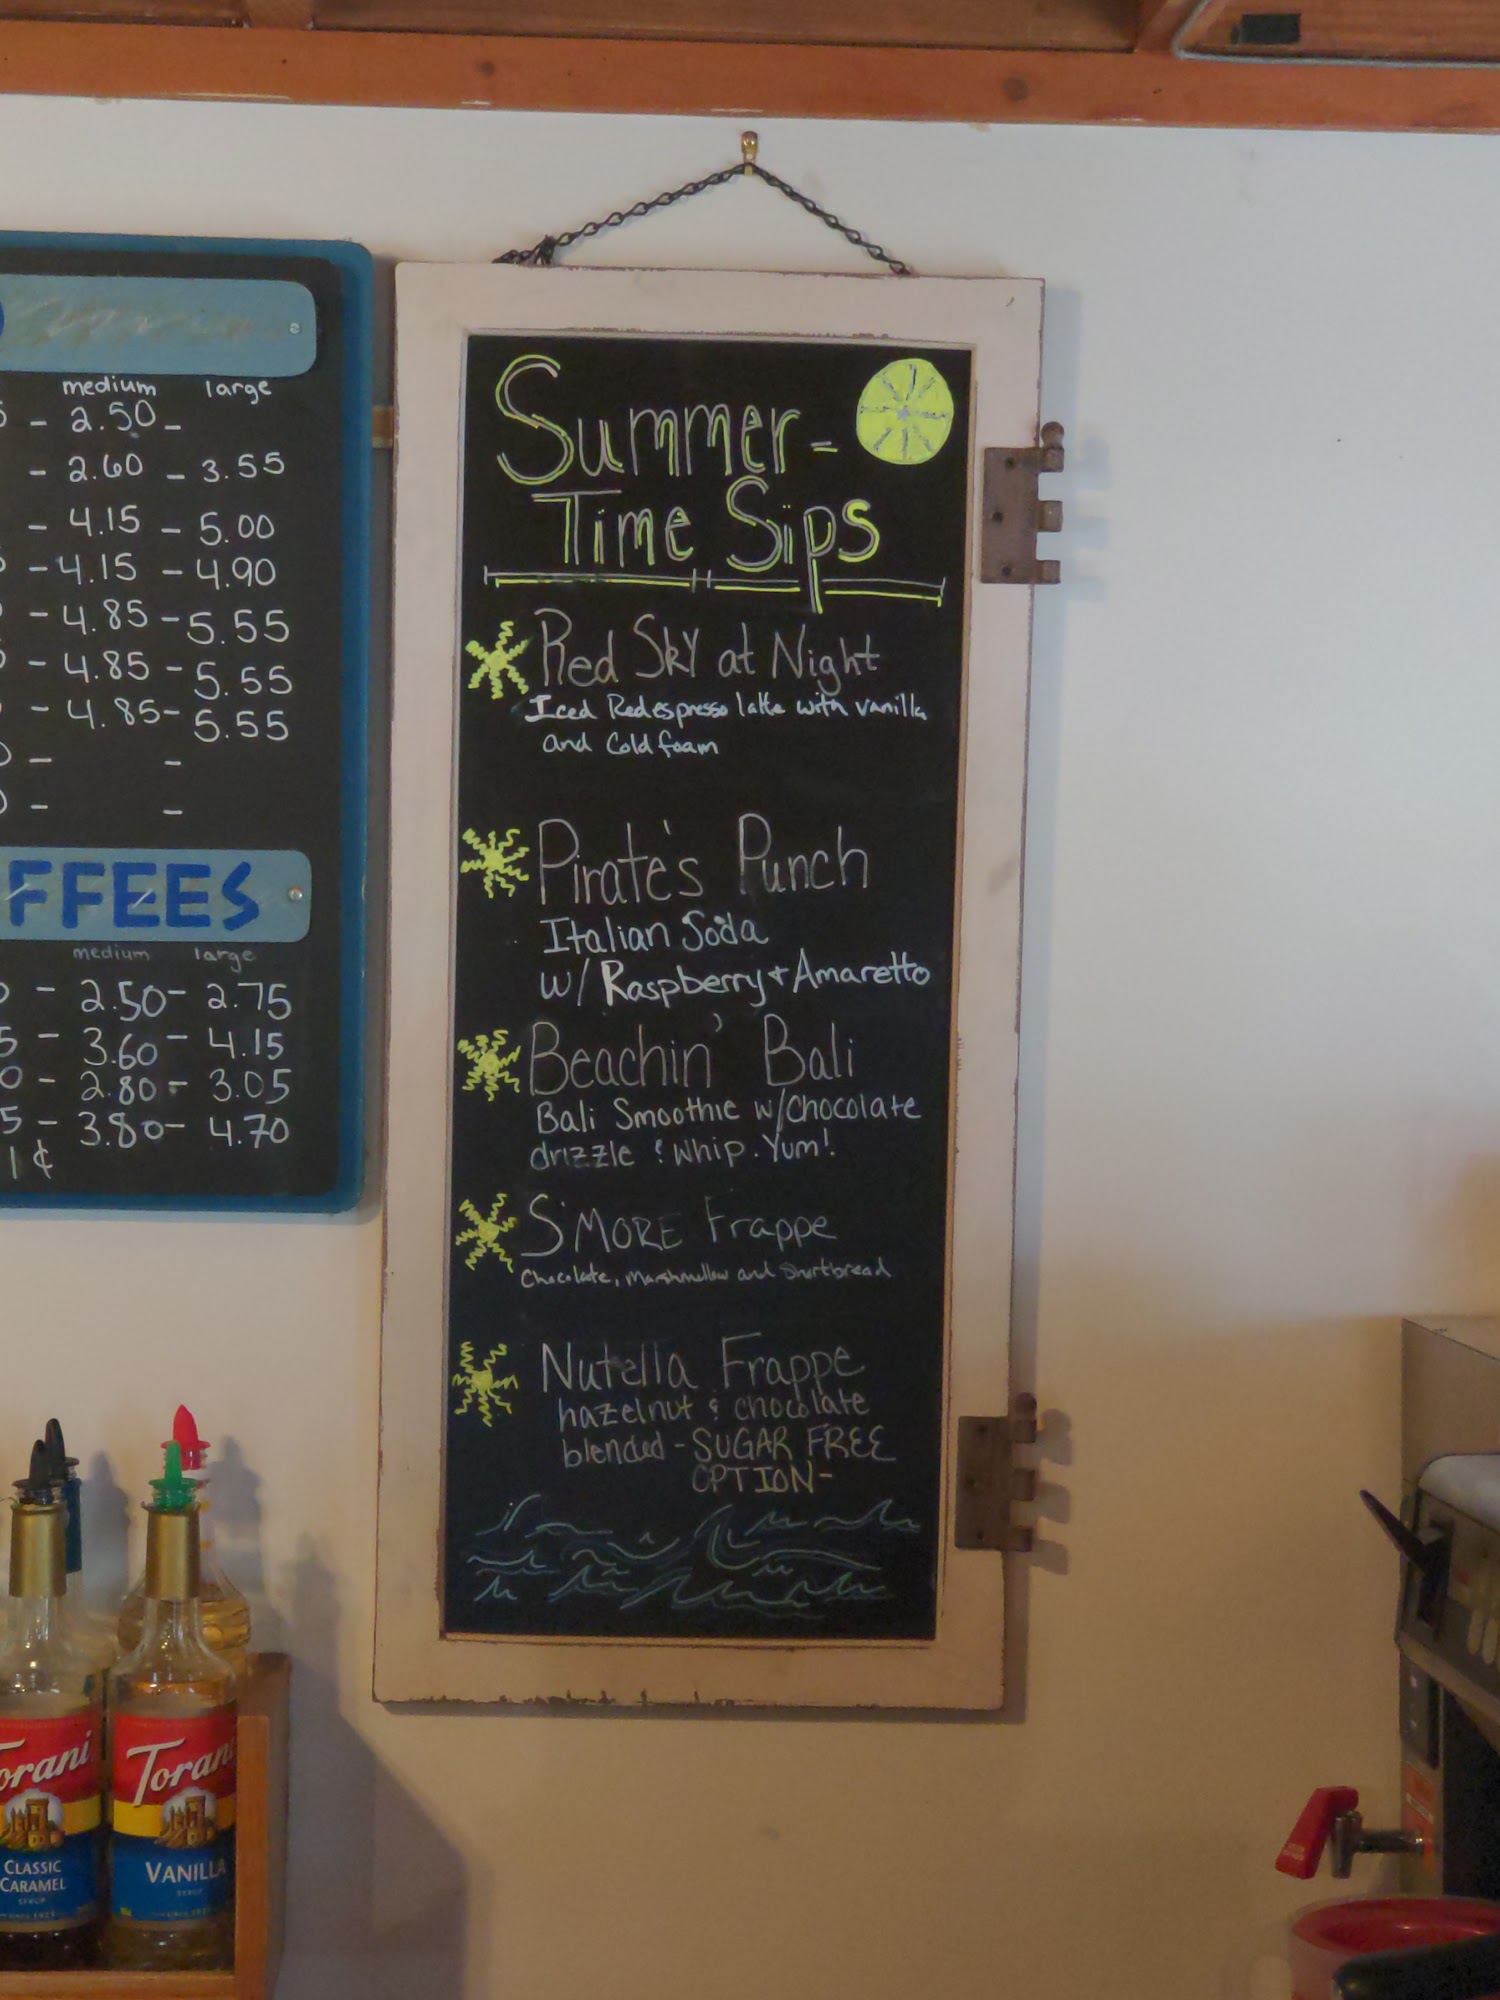 medium large
- 2.50 -
- 2.60 - 3.55
- 4.15 - 5.00
- 4.15 - 4.90
- 4.85 - 5.55
- 4.85 - 5.55
- 4.85 - 5.55
- -
- -
FFEES
medium large
- 2.50 - 2.75
5 - 3.60 - 4.15
0 - 2.80 - 3.05
5 - 3.80 - 4.70
1¢
Summer-
Time Sips
Red Sky at Night
Iced Red espresso latte with vanilla
and Cold foam
Pirate's Punch
Italian Soda
w/ Raspberry + Amaretto
Beachin' Bali
Bali Smoothie w/Chocolate
drizzle & Whip. Yum!
S'MORE Frappe
Chocolate, Marshmellow and Shortbread
Nutella Frappe
hazelnut & chocolate
blended - SUGAR FREE
OPTION-
Torani
CLASSIC
CARAMEL
SYRUP
Torani
VANILLA
SYRUP